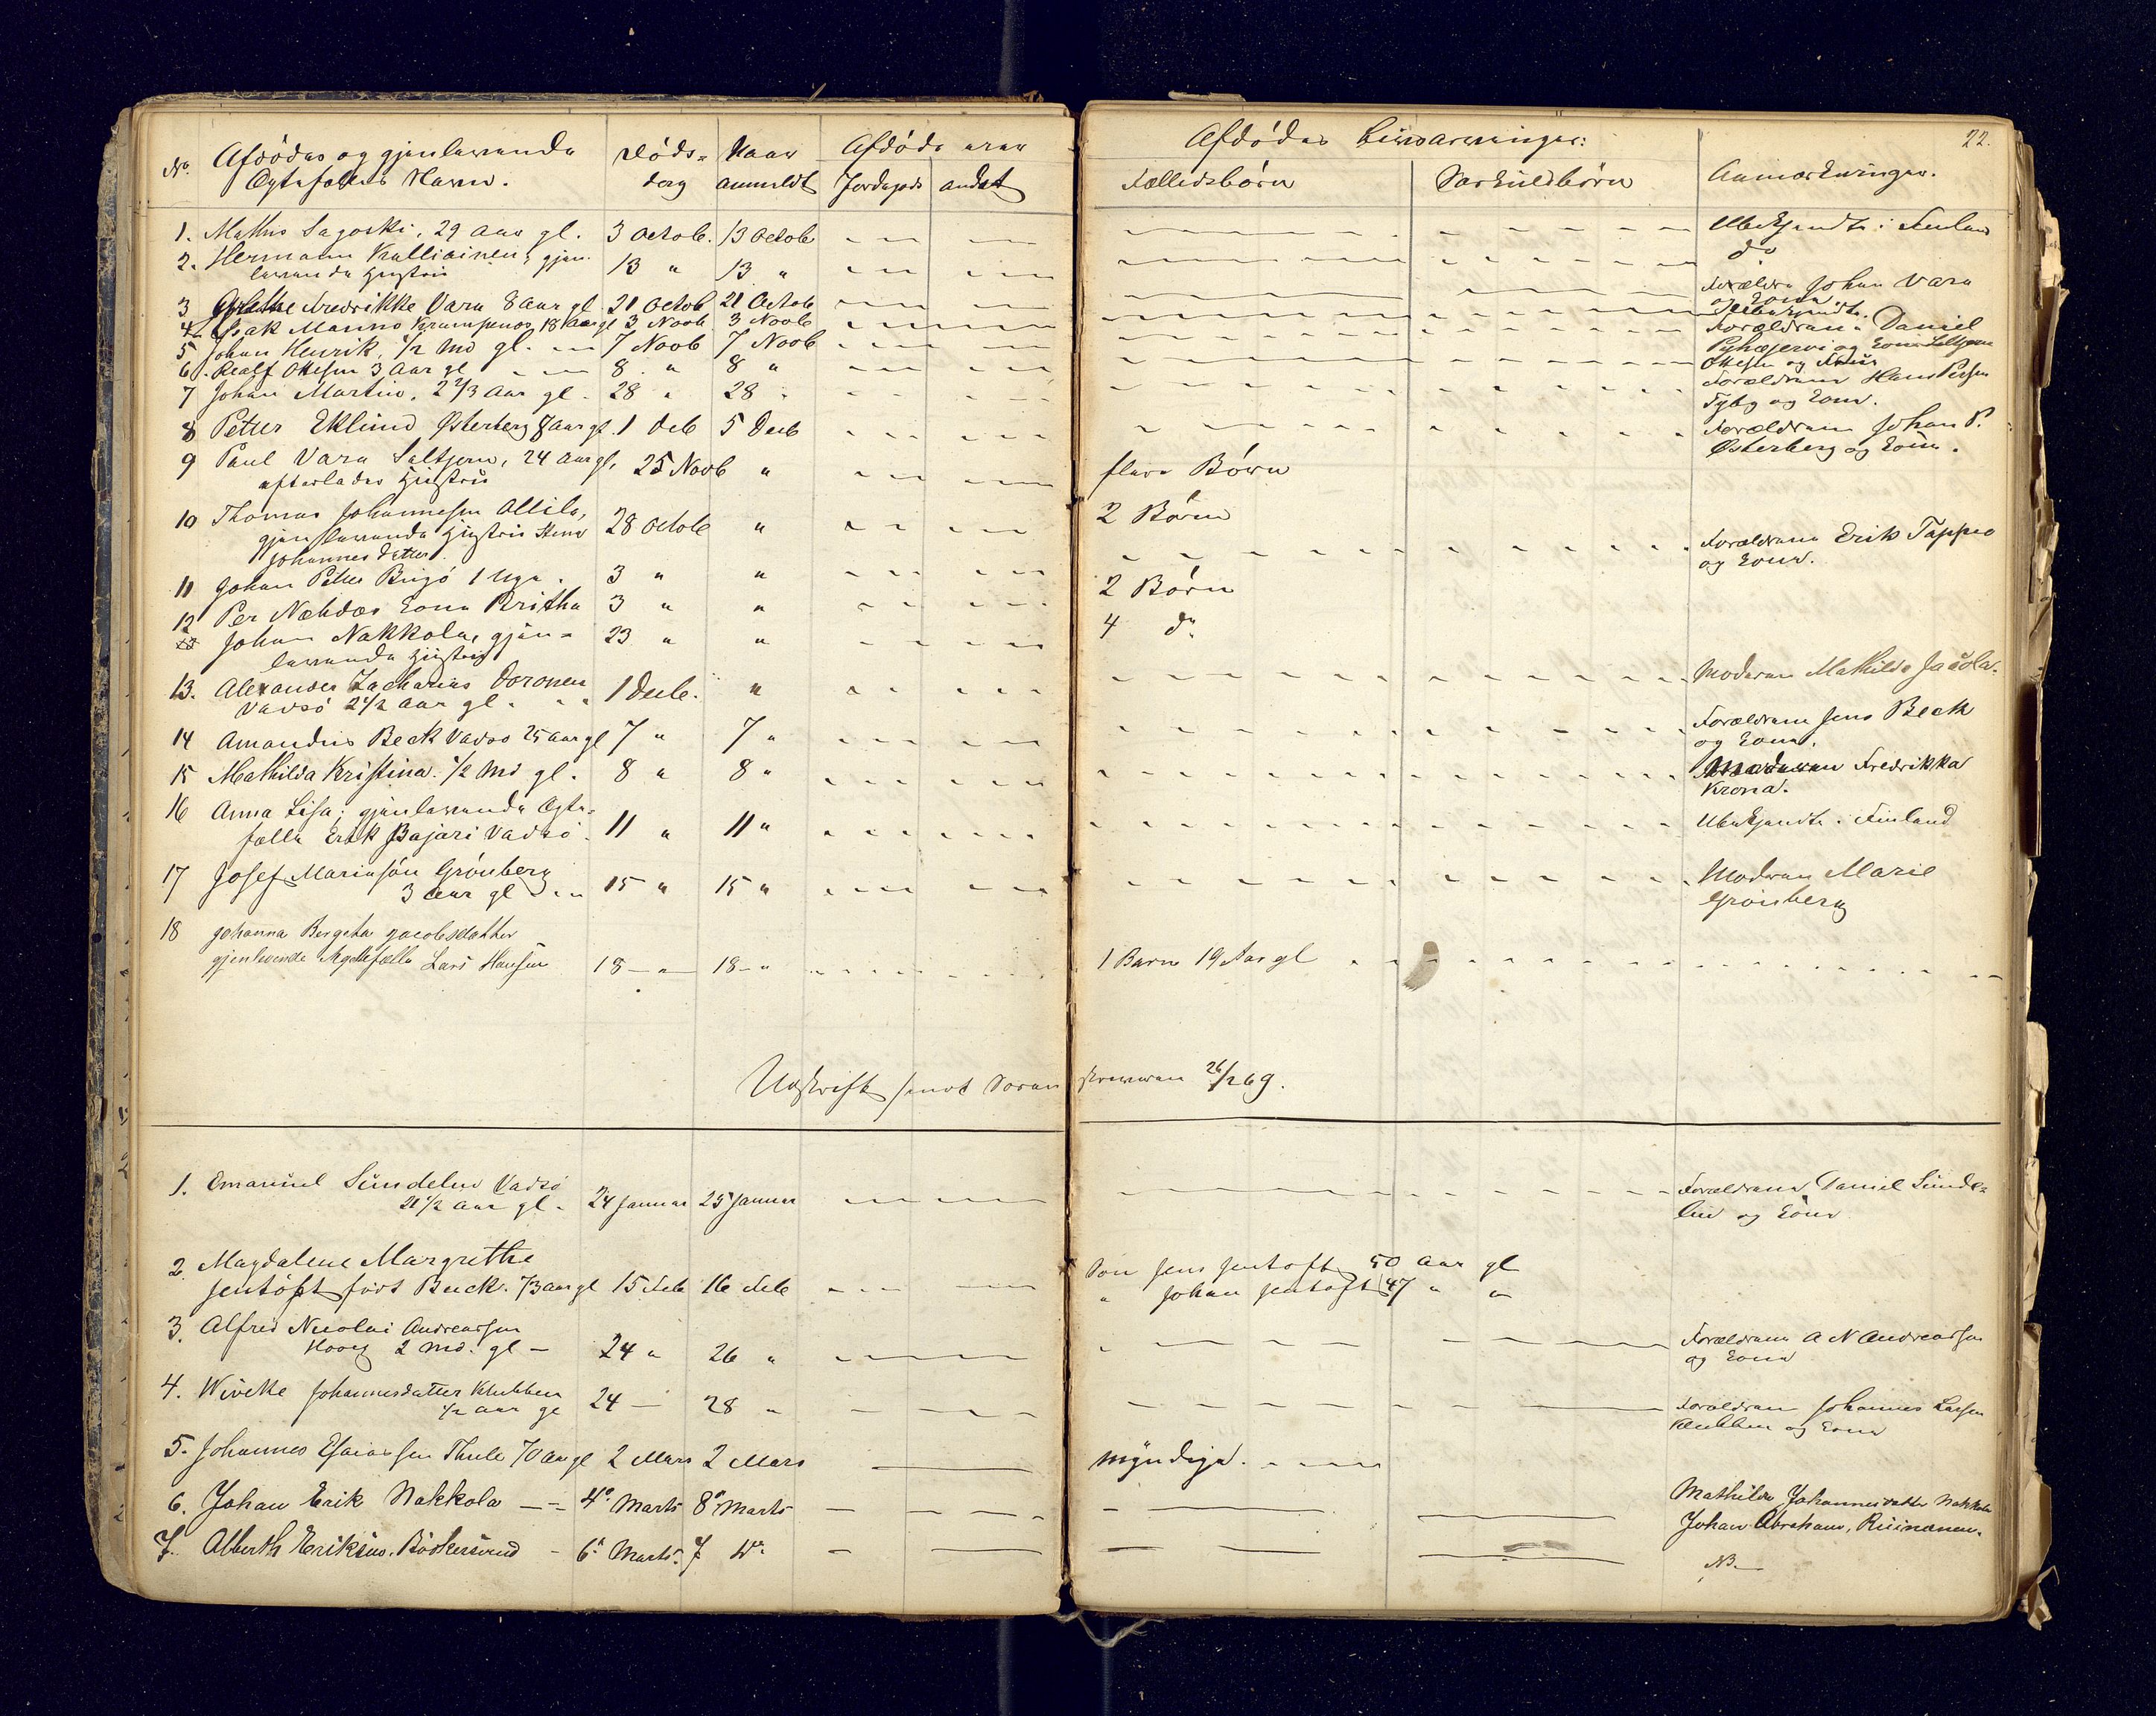 22.
No. Afdødes og gjenlevende Døds= Naar Afdøde eier
Ægtefælles Navn. dag anmeldt Jordegods andet
1. Mathis Sagoski, 29 Aar gl. 3 Octob. 13 Octob
2. Hermann Kalliainen, gjen-
levende Hustru 13 " 13 "
3 Grethe Fredrikke Vara 8 Aar gl 21 Octob 21 Octob
4 Isak Manno Krumpenos, 18 Aar gl 3 Novb 3 Novb
5 Johan Henrik, 1/2 Md gl. 7 Novb 7 Novb
6. Realf Ottesen 3 Aar gl 8 " 8 "
7 Johan Martin, 2 2/3 Aar gl. 28 " 28 "
8 Petter Eklund Østerberg 8 Aar gl. 1 Deb 5 Decb
9 Paul Vara Saltjern, 24 Aar gl, 25 Novb "
efterlader Hustru
10 Thomas Johannesen Allila,
gjenlevende Hustru Stina 28 Octob "
Johannes datter.
11 Johan Petter Briajó 1 Uge. 3 " "
12 Per Næhdæs Kone Britha 3 " "
Johan Nakkola, gjen= 23 " "
levende Hustru
13. Alexander Zacharias Doronen 1 Decb. "
Vadsø 2 1/2 Aar gl.
14 Amandus Beck Vadsø 25 Aar gl 7 " 7 "
15 Mathilda Kristina. 1/2 Md gl. 8 " 8 "
16 Anna Lisa; gjenlevende Ægte=
fælle Erik Bajari Vadsø. 11 " 11 "
17 Josef Mariusøn Grönberg
3 Aar gl 15 " 15 "
18 Johanna Bergeta Jacobsdatter
gjenlevende Ægtefælle Lars Hansen 18 - " - 18 - "
Udskrift sendt Soren
1. Emanuel Sundelin Vadsø
21 1/2 Aar gl. 24 Januar 25 Januar
2. Magdalene Margrethe
Jentoft født Buck. 73 aar gl 15 Feb 16 Feb
3. Alfred Nicolai Andreassen
Haag 2 Md. gl - 24 " 26 "
4. Wivekke Johannesdatter Klubben
1/2 Aar gl 24 - 28 "
5. Johannes Esaiassen Thule 70 Aar gl 2 Mars 2 Mars
6. Johan Erik Nakkola -- 4de Marts 8de Marts
7. Alberth Eriksen, Böskersund - 6te Marts. 7 do
Afdødes Livsarvinger:
Fælledsbørn Særkuldbørn Anmærkninger.
Ubekjendte i Finland
do
Forældre Johan Vara
og Kone.
Ubekjendte.
Forældrene Daniel
Pyhæjervi og Kone Saltjern
Ottesen og Frue
Forældrene Hans Persen
Tyby og Kone.
Forældrene Johan P.
Østerberg og Kone.
flere Børn
2 Børn
Forældrene Erik Tappio
og Kone.
2 Børn
4 do
Moderen Mathilde Jacola.
Forældrene Jens Beck
og Kone.
Moderen Fredrikka
Krona.
Ubekjendte i Finland
Moderen Marie
Grönberg
1 Barn 19 Aar gl
skriveren 26/1 69.
Forældrene Daniel Sunde=
lin og Kone
Søn Jens Jentoft 50 Aar gl
" Johan Jentoft 47 " "
Forældrene A N Andreassen
og Kone
Forældrene Johannes Larsen
Klubben og Kone
myndige.
Mathilde Johannesdatter Nakkola
Johan Abraham, Riinanen.
NB.